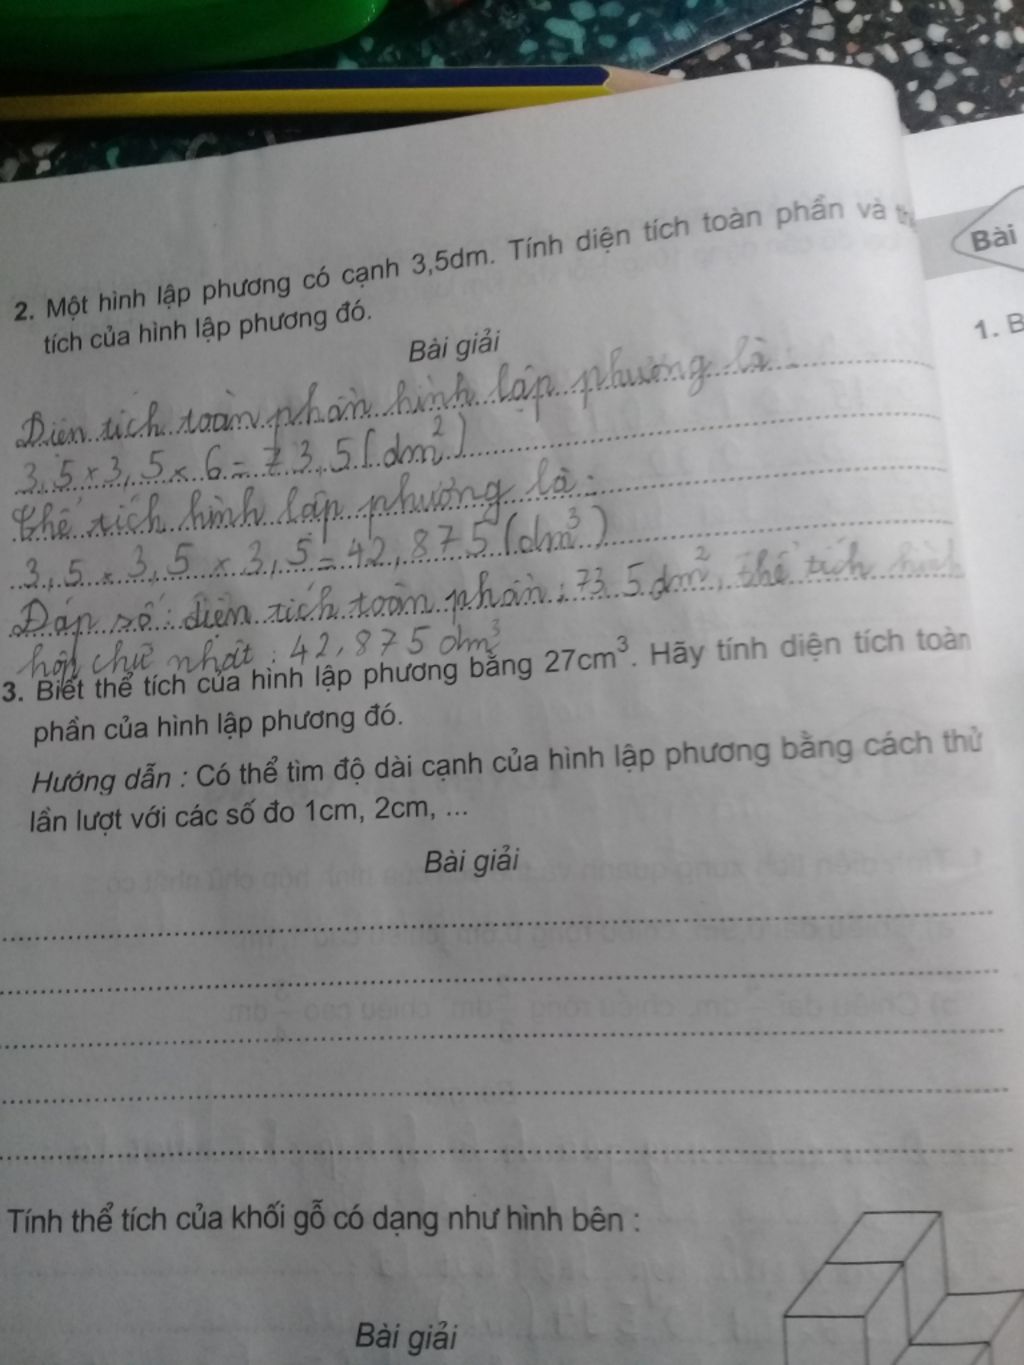 2. Một hình lập phương có cạnh 3,5dm. Tính diện tích toàn phần và
tích của hình lập phương đó.
Bài giải
Diện tích toàn phần hình lập phương là :
3,5 x 3,5 x 6 = 73,5 (dm²)
thể tích hình lập phương là :
3,5 x 3,5 x 3,5 = 42,875 (dm³)
Đáp số : diện tích toàn phần : 73,5 dm², thể tích hình
hộp chữ nhật : 42,875 dm³
3. Biết thể tích của hình lập phương bằng 27cm³. Hãy tính diện tích toàn
phần của hình lập phương đó.
Hướng dẫn : Có thể tìm độ dài cạnh của hình lập phương bằng cách thử
lần lượt với các số đo 1cm, 2cm, ...
Bài giải
Tính thể tích của khối gỗ có dạng như hình bên :
Bài giải
Bài
1. B